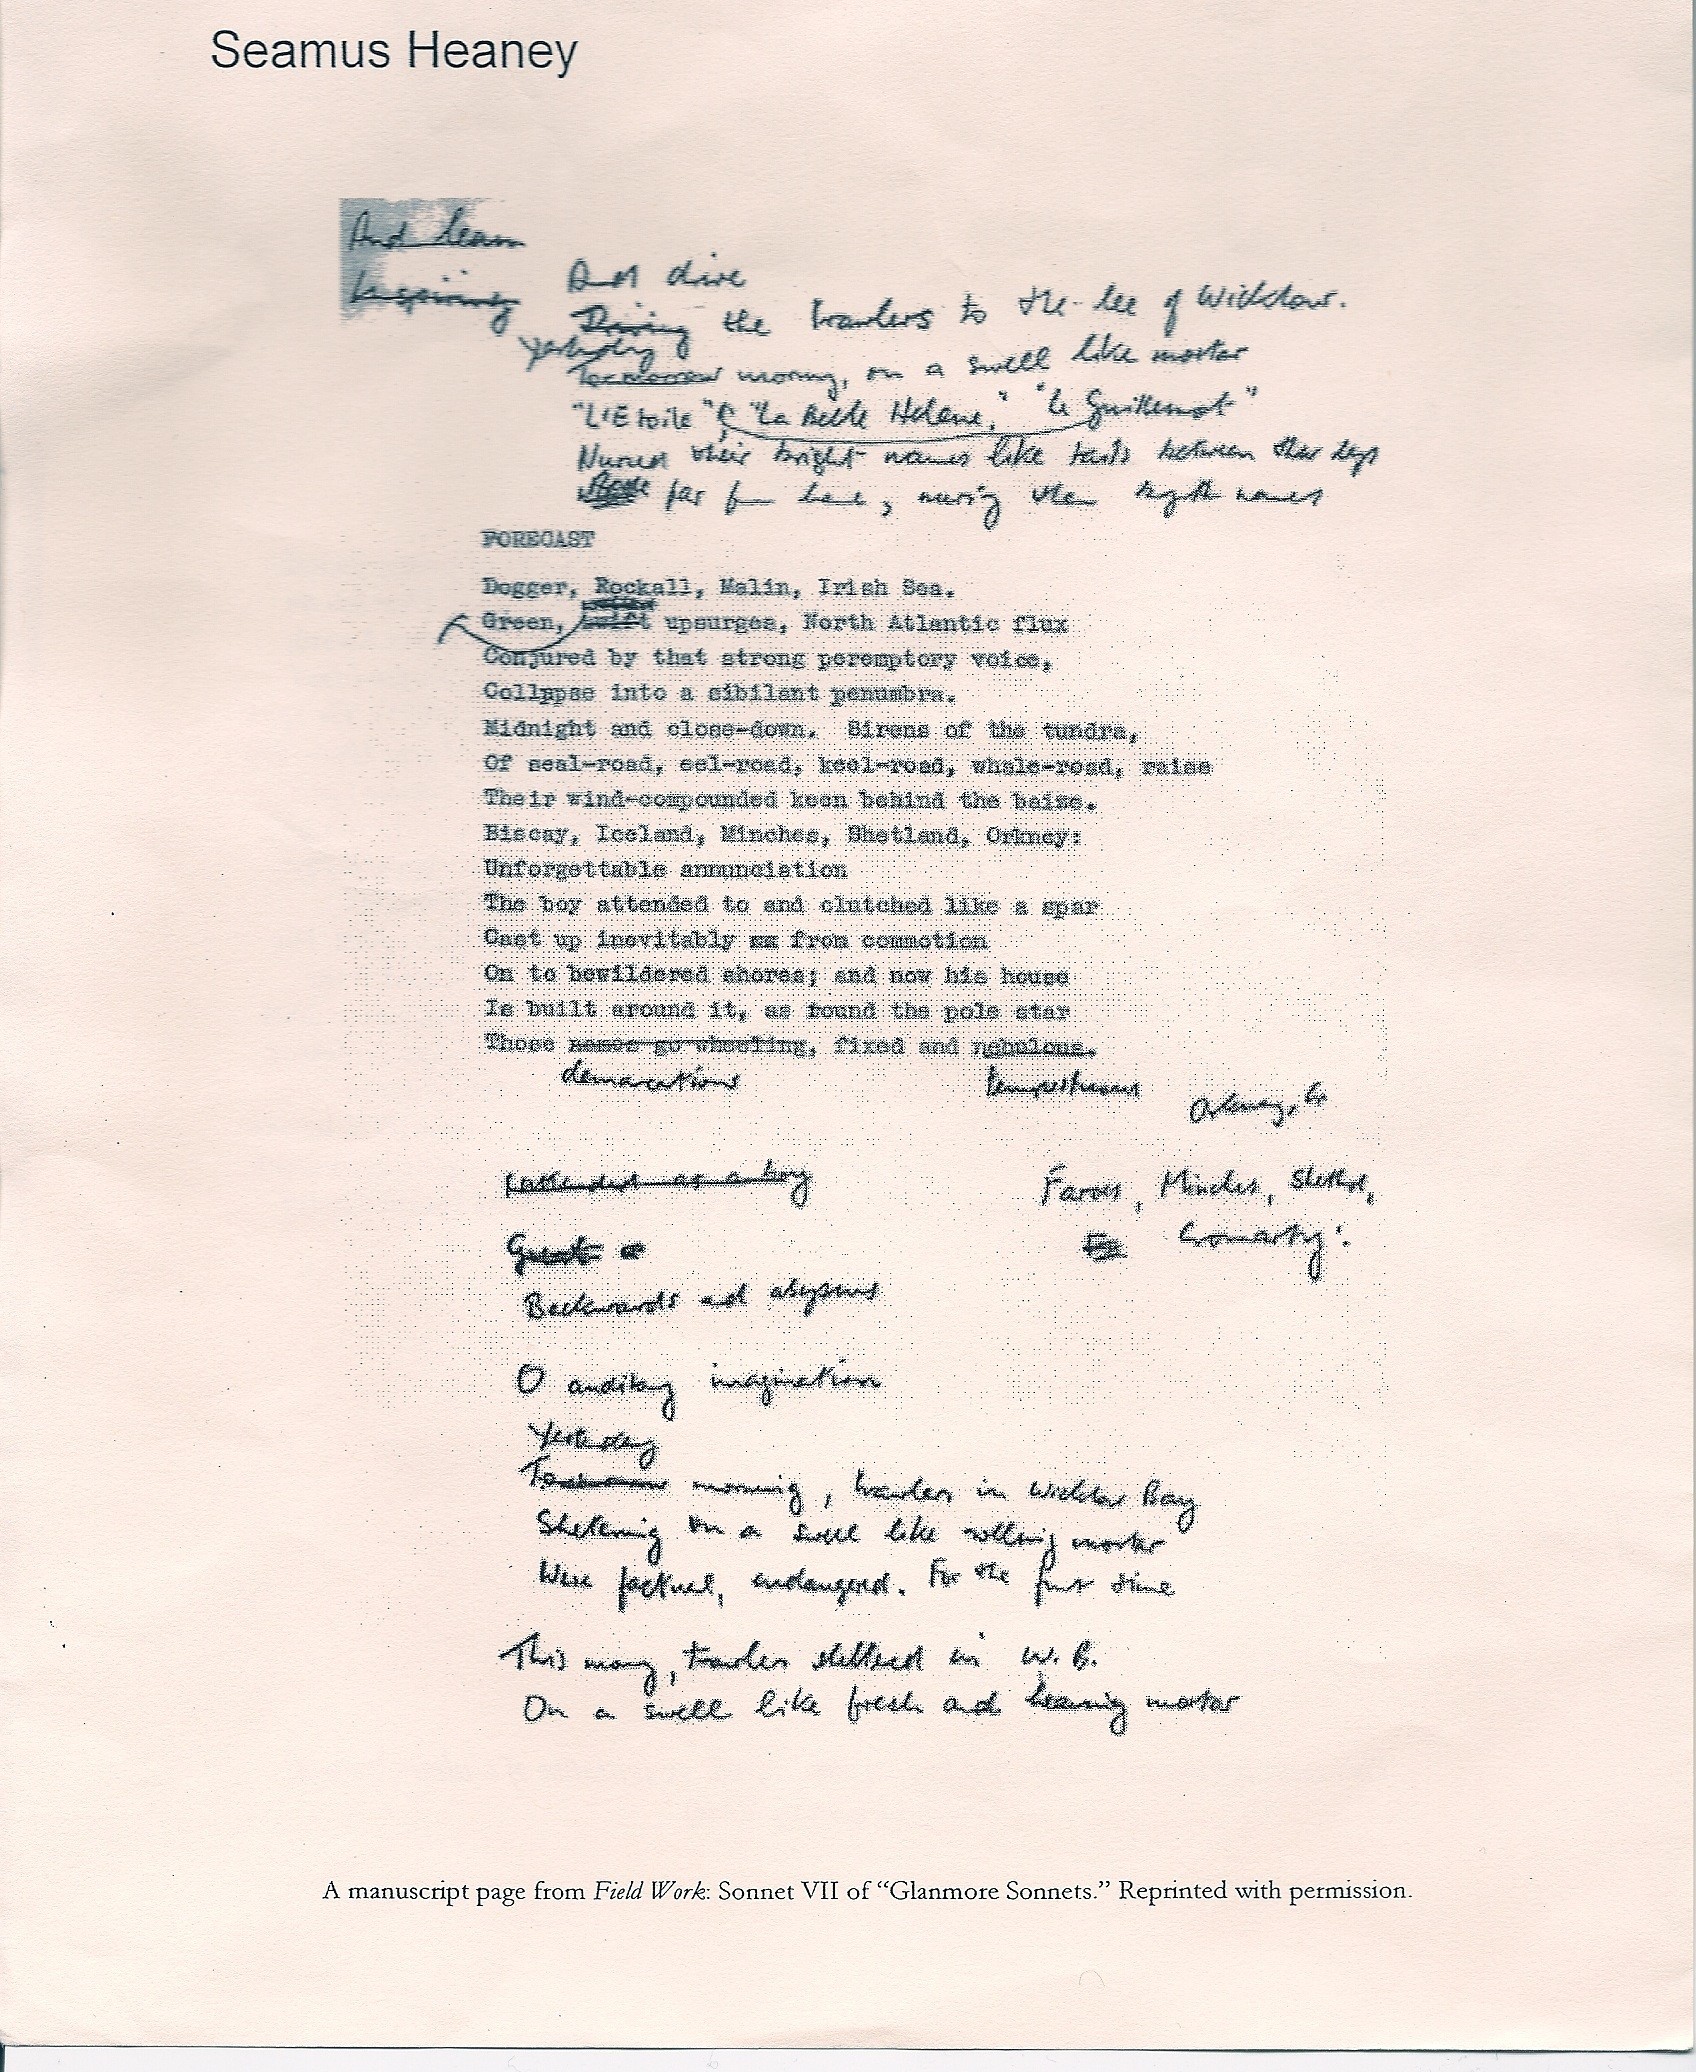 Seamus Heaney
And learn
And drive
Driving the trawlers to the lee of Wicklow.
Yesterday
Tomorrow morning, on a swell like mortar
"L'Etoile" "La Belle Helene," "Le Guillemot"
Nursed their bright names like tails between their legs
far from here, nursing their bright names
FORECAST
Dogger, Rockall, Malin, Irish Sea.
Green, swift upsurges, North Atlantic flux
Conjured by that strong peremptory voice,
Collapse into a sibilant penumbra.
Midnight and close-down. Sirens of the tundra,
Of seal-road, eel-road, keel-road, whale-road, raise
Their wind-compounded keen behind the baize.
Biscay, Iceland, Minches, Shetland, Orkney:
Unforgettable annunciation
The boy attended to and clutched like a spar
Cast up inevitably from commotion
On to bewildered shores; and now his house
Is built around it, as round the pole star
Those names go wheeling, fixed and nebulous.
demarcations tempestuous
Orkney,
attended as a boy
Faroes, Minches, Shetland,
Cromarty:
Backwards and
O auditory imagination
Yesterday
Tomorrow morning, trawlers in Wicklow Bay
Sheltering on a swell like rolling mortar
Were factual, endangered. For the first time
This morning, trawlers sheltered in W. B.
On a swell like fresh and heaving mortar
A manuscript page from Field Work: Sonnet VII of “Glanmore Sonnets.” Reprinted with permission.